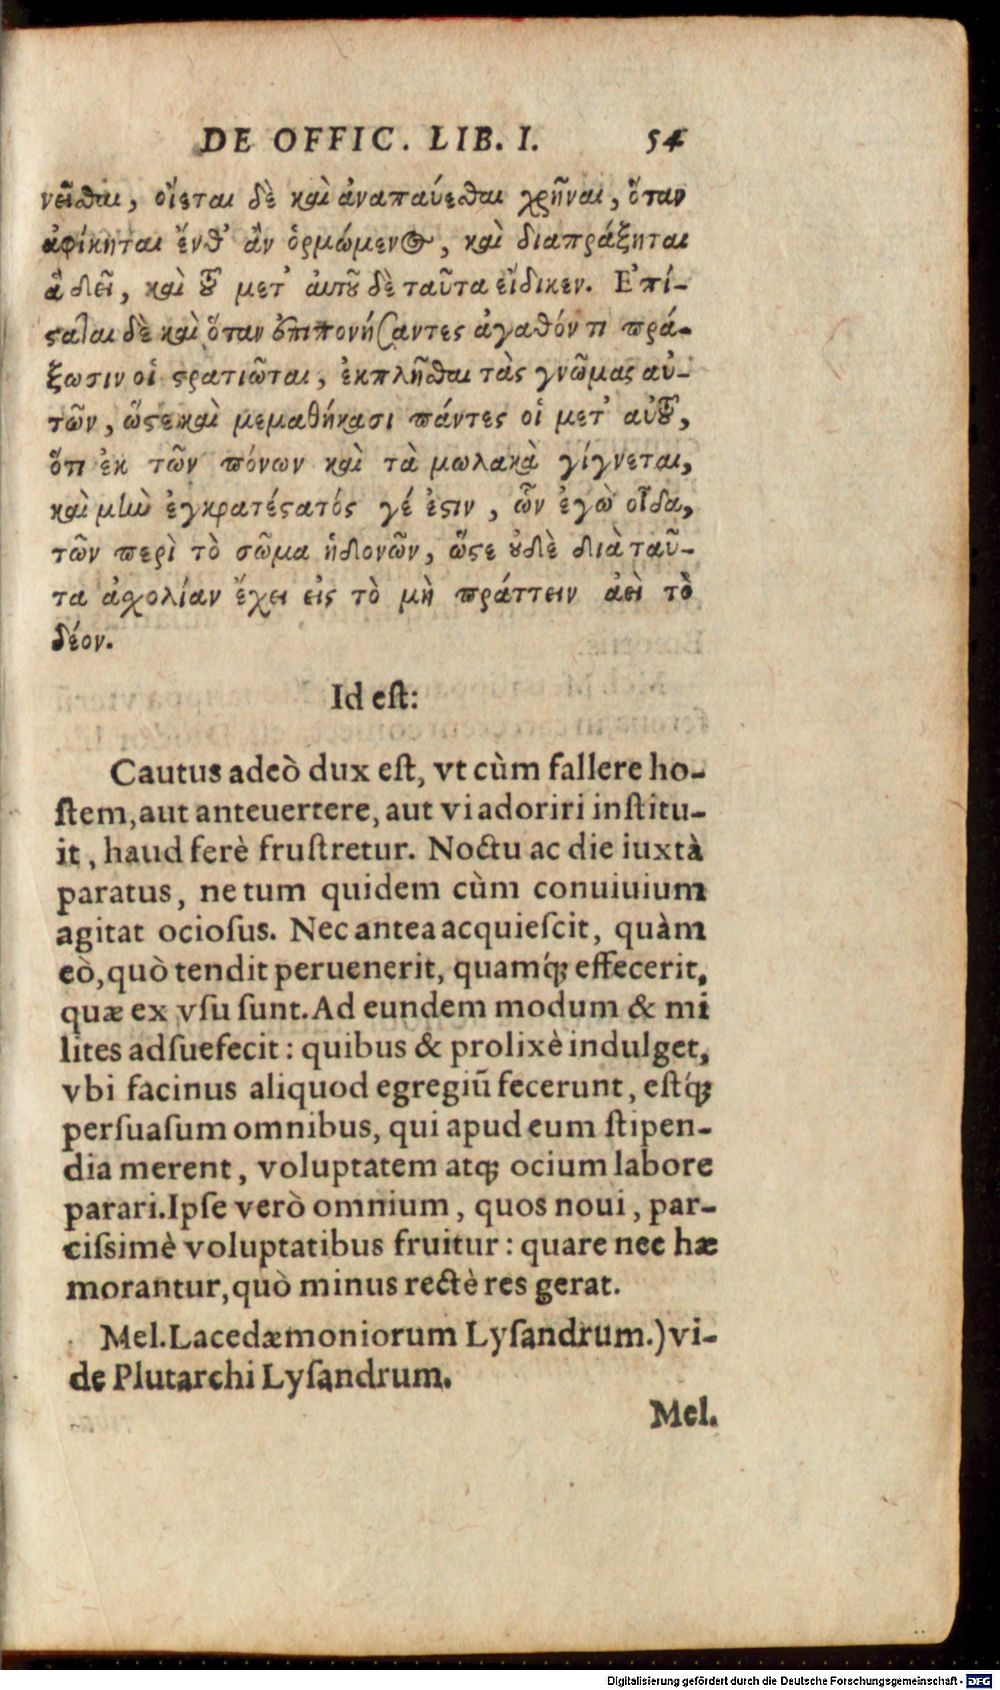 DE OFFIC. LIB. I. 54
νεῖσθαι, οἴεται δὲ καὶ ἀναπαύεσθαι χρῆναι, ὅταν
ἀφίκηται ἔνθ' ἂν ὁρμώμενος, καὶ διαπράξηται
ἃ δεῖ, καὶ τοῦ μετ' αὐτοῦ δὲ ταῦτα εἴδικεν. Ἐπί-
σαται δὲ καὶ ὅταν ἐπιπονήσαντες ἀγαθόν τι πρά-
ξωσιν οἱ στρατιῶται, ἐκπλῆσθαι τὰς γνῶμας αὐ-
τῶν, ὥστε καὶ μεμαθήκασι πάντες οἱ μετ' αὐτοῦ,
ὅτι ἐκ τῶν πόνων καὶ τὰ μωλακὰ γίγνεται,
καὶ μὴν ἐγκρατέστατός γέ ἐστιν, ὧν ἐγὼ οἶδα,
τῶν περὶ τὸ σῶμα ἡδονῶν, ὥστε οὐδὲ διὰ ταῦ-
τα ἀσχολίαν ἔχει εἰς τὸ μὴ πράττειν ἀεὶ τὸ
δέον.
Id est:
Cautus adeò dux est, vt cùm fallere ho-
stem, aut anteuertere, aut vi adoriri institu-
it, haud ferè frustretur. Noctu ac die iuxtà
paratus, ne tum quidem cùm conuiuium
agitat ociosus. Nec antea acquiescit, quàm
eò, quò tendit peruenerit, quamq́; effecerit,
quæ ex vsu sunt. Ad eundem modum & mi
lites adsuefecit: quibus & prolixè indulget,
vbi facinus aliquod egregiũ fecerunt, estq́;
persuasum omnibus, qui apud eum stipen-
dia merent, voluptatem atq; ocium labore
parari. Ipse verò omnium, quos noui, par-
cissimè voluptatibus fruitur: quare nec hæ
morantur, quò minus rectè res gerat.
Mel. Lacedæmoniorum Lysandrum.) vi-
de Plutarchi Lysandrum.
Mel.
Digitalisierung gefördert durch die Deutsche Forschungsgemeinschaft - DFG